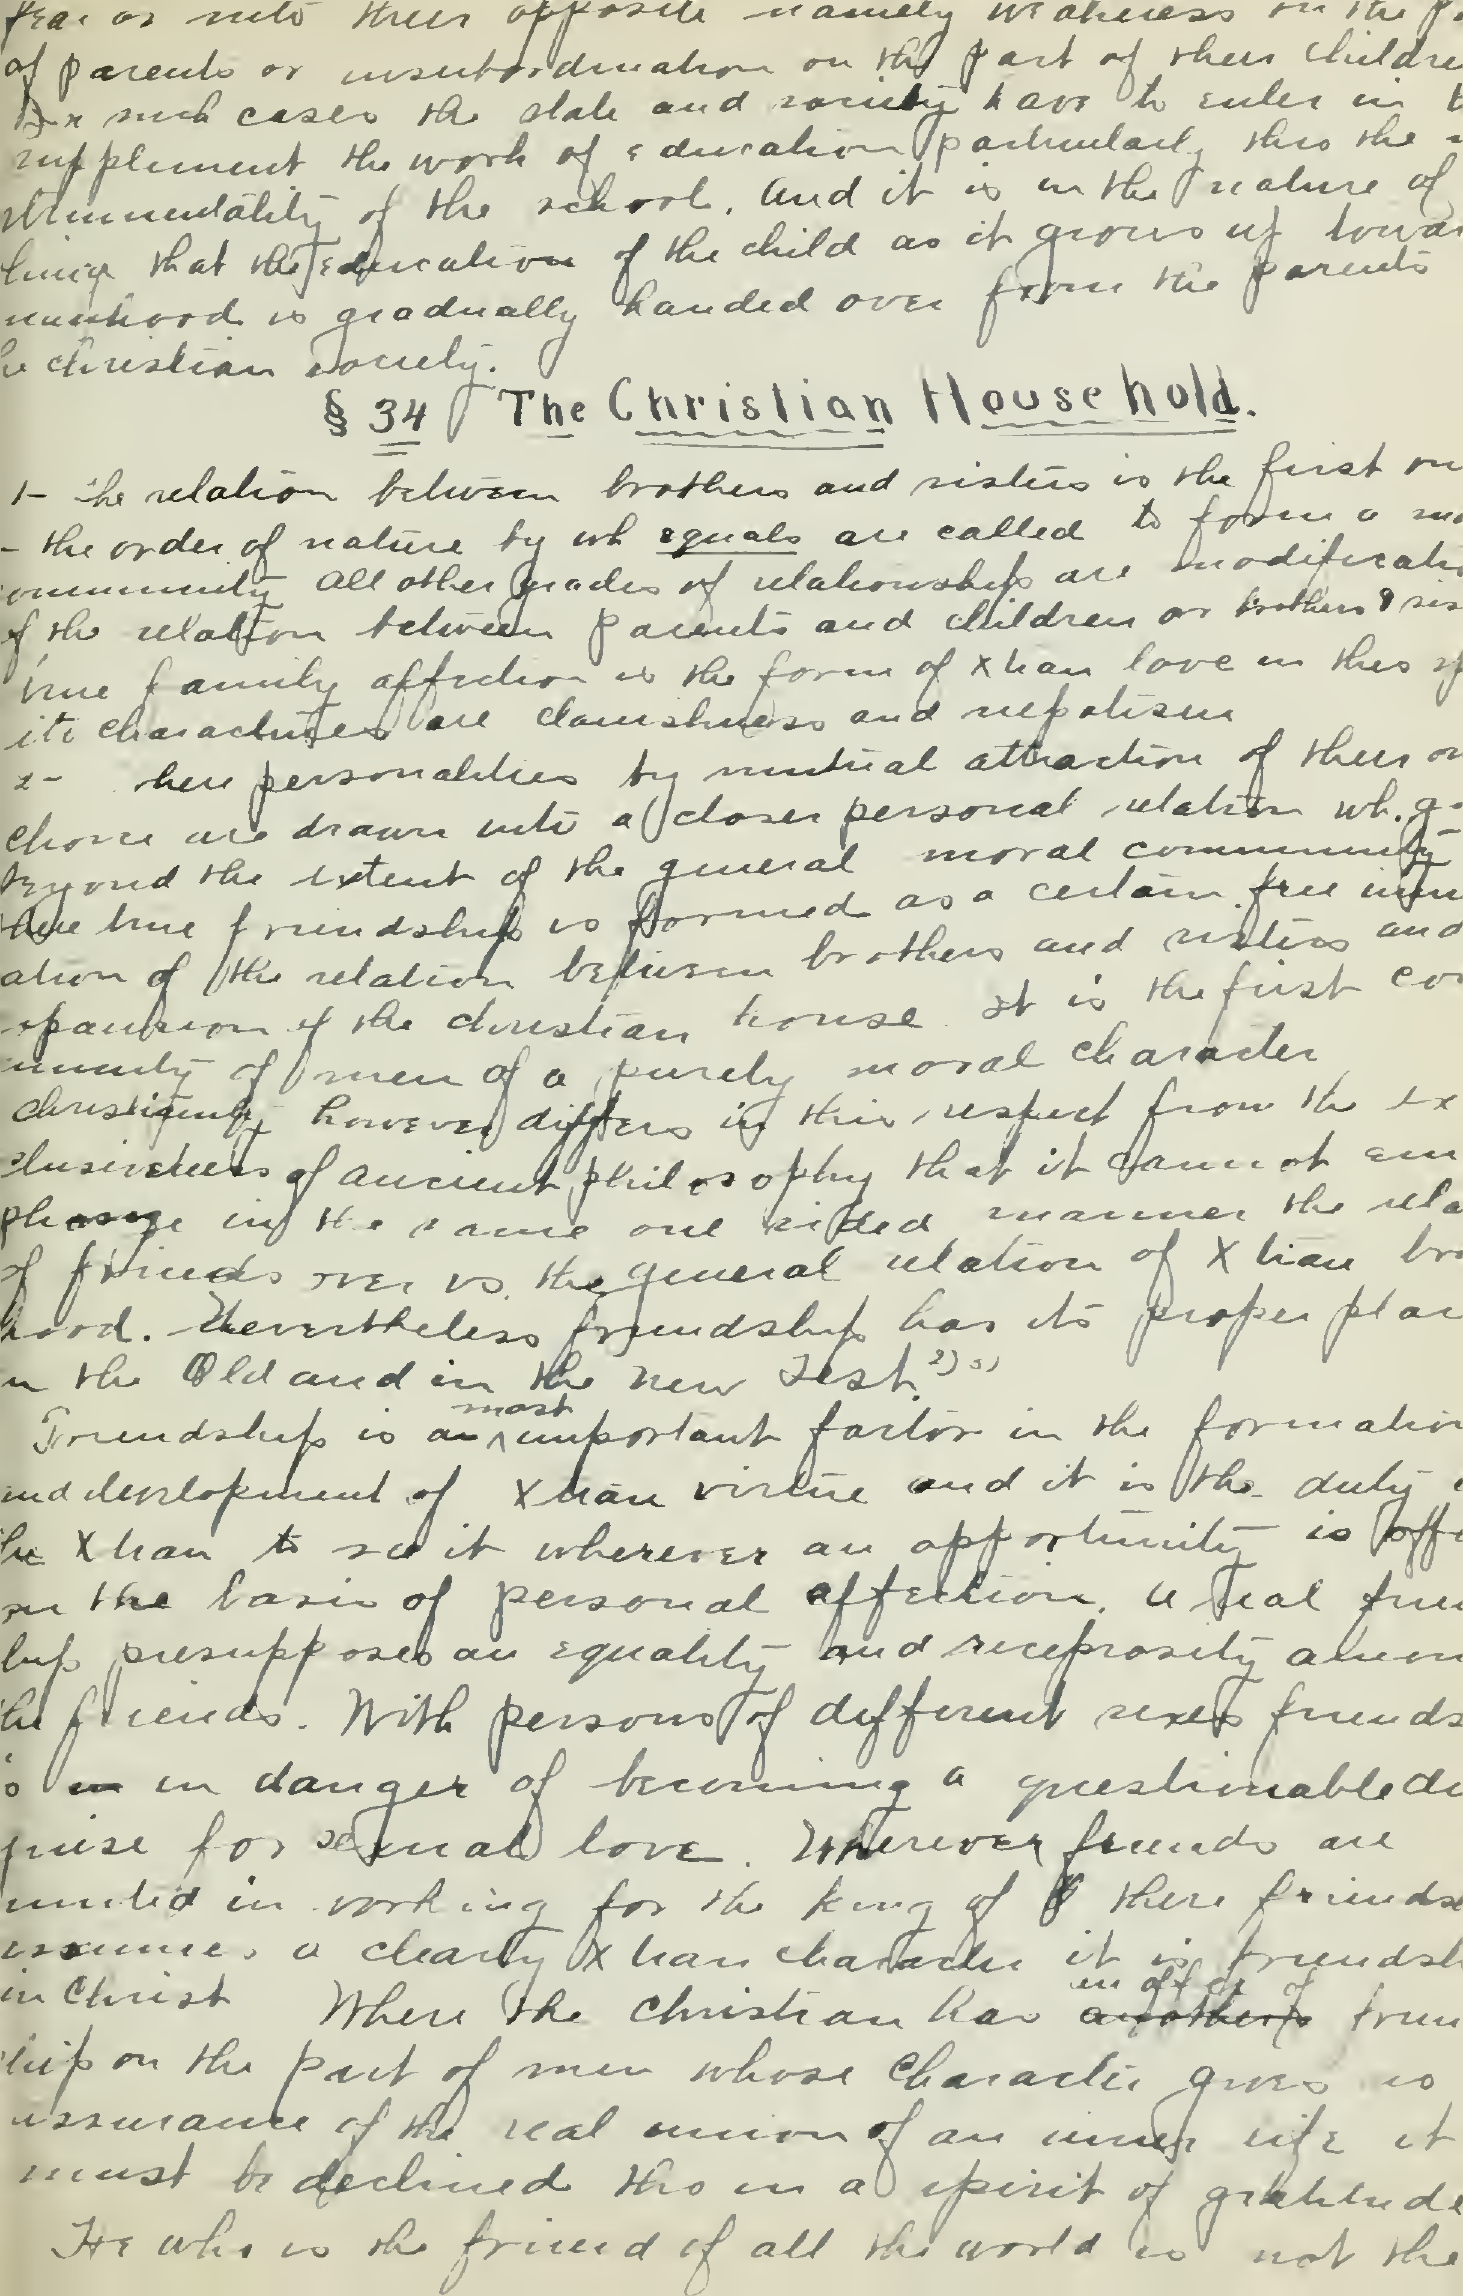 fear or into their opposite namely weakness on the p
of parents or insubordination on the part of their childre
In such cases the state and society have to enter in t
supplement the work of education particularly thro the
strumentality of the school. And it is in the nature of
things that the education of the child as it grows up towar
manhood is gradually handed over from the parents
he Christian society.
§ 34 The Christian Household.
1- The relation between brothers and sisters is the first on
- the order of nature by wh equals are called to form a mo
ommunity All other grades of relationship are modificatio
of the relation between parents and children or brothers & sis
True family affection is the form of Xtian love in this sp
its characters are clanishness and nepotism
2- When personalities by mutual attraction of their ow
choice are drawn into a closer personal relation wh. go
beyond the extent of the general moral community
there true friendship is formed as a certain free imm
ation of the relation between brothers and sisters and
xpansion of the Christian house It is the first com
munity of men of a purely moral character
Christianity however differs in this respect from the ex
clusiveness of ancient philosophy that it cannot em
phasize in the same one sided manner the rela
of friends over vs. the general relation of Xtian bro
hood. Nevertheless friendship has its proper plac
in the Old and in the New Test. 2) 3)
Friendship is a most important factor in the formation
and development of Xtian virtue and it is the duty o
the Xtian to it wherever an opportunity is offe
on the basis of personal affection. A real frien
ship presupposes an equality and reciprosity amon
the friends. With persons of different sexes friends
is in danger of becoming a questionable dis
guise for sexual love. Wherever friends are
united in working for the king of G there friendsh
assumes a clearly Xtian character it is friendsh
in Christ Where the Christian has an offer of frien
ship on the part of men whose character gives no
assurance of the real union of an inner life it
must be declined tho in a spirit of gratitude
He who is the friend of all the world is not the